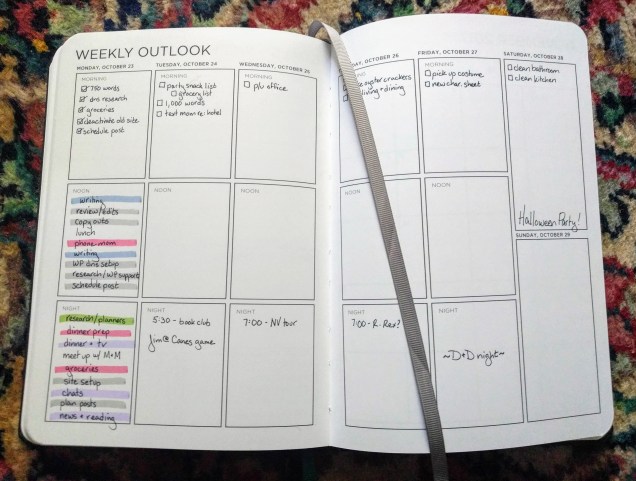 WEEKLY OUTLOOK
MONDAY, OCTOBER 23
MORNING
750 words
dns research
groceries
deactivate old site
schedule post
NOON
writing
review/edits
copy outs
lunch
phone mom
writing
WP dns setup
research/WP support
schedule post
NIGHT
research/planners
dinner prep
dinner + tv
meet up w/ M+M
groceries
site setup
chats
plan posts
news + reading
TUESDAY, OCTOBER 24
MORNING
party snack list
grocery list
1,000 words
text mom re: hotel
NOON
NIGHT
5:30 - book club
Jim @ Canes game
WEDNESDAY, OCTOBER 25
MORNING
p/u office
NOON
NIGHT
7:00 - NV tour
OCTOBER 26
MORNING
oyster crackers
living + dining
NOON
NIGHT
7:00 - R. Rex?
FRIDAY, OCTOBER 27
MORNING
pick up costume
new char. sheet
NOON
NIGHT
~D+D night~
SATURDAY, OCTOBER 28
clean bathroom
clean kitchen
Halloween Party!
SUNDAY, OCTOBER 29